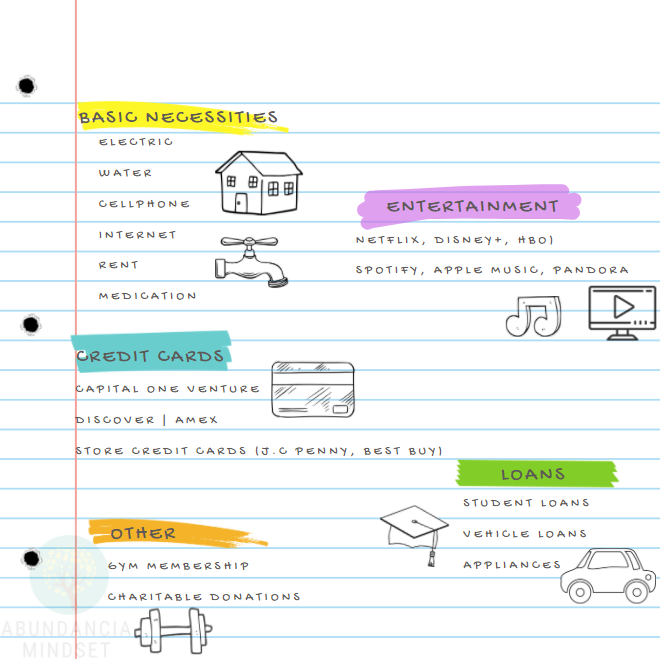 BASIC NECESSITIES
ELECTRIC
WATER
CELLPHONE
INTERNET
RENT
MEDICATION
ENTERTAINMENT
NETFLIX, DISNEY+, HBO)
SPOTIFY, APPLE MUSIC, PANDORA
CREDIT CARDS
CAPITAL ONE VENTURE
DISCOVER | AMEX
STORE CREDIT CARDS (J.C PENNY, BEST BUY)
LOANS
STUDENT LOANS
VEHICLE LOANS
APPLIANCES
OTHER
GYM MEMBERSHIP
CHARITABLE DONATIONS
ABUNDANCIA
MINDSET